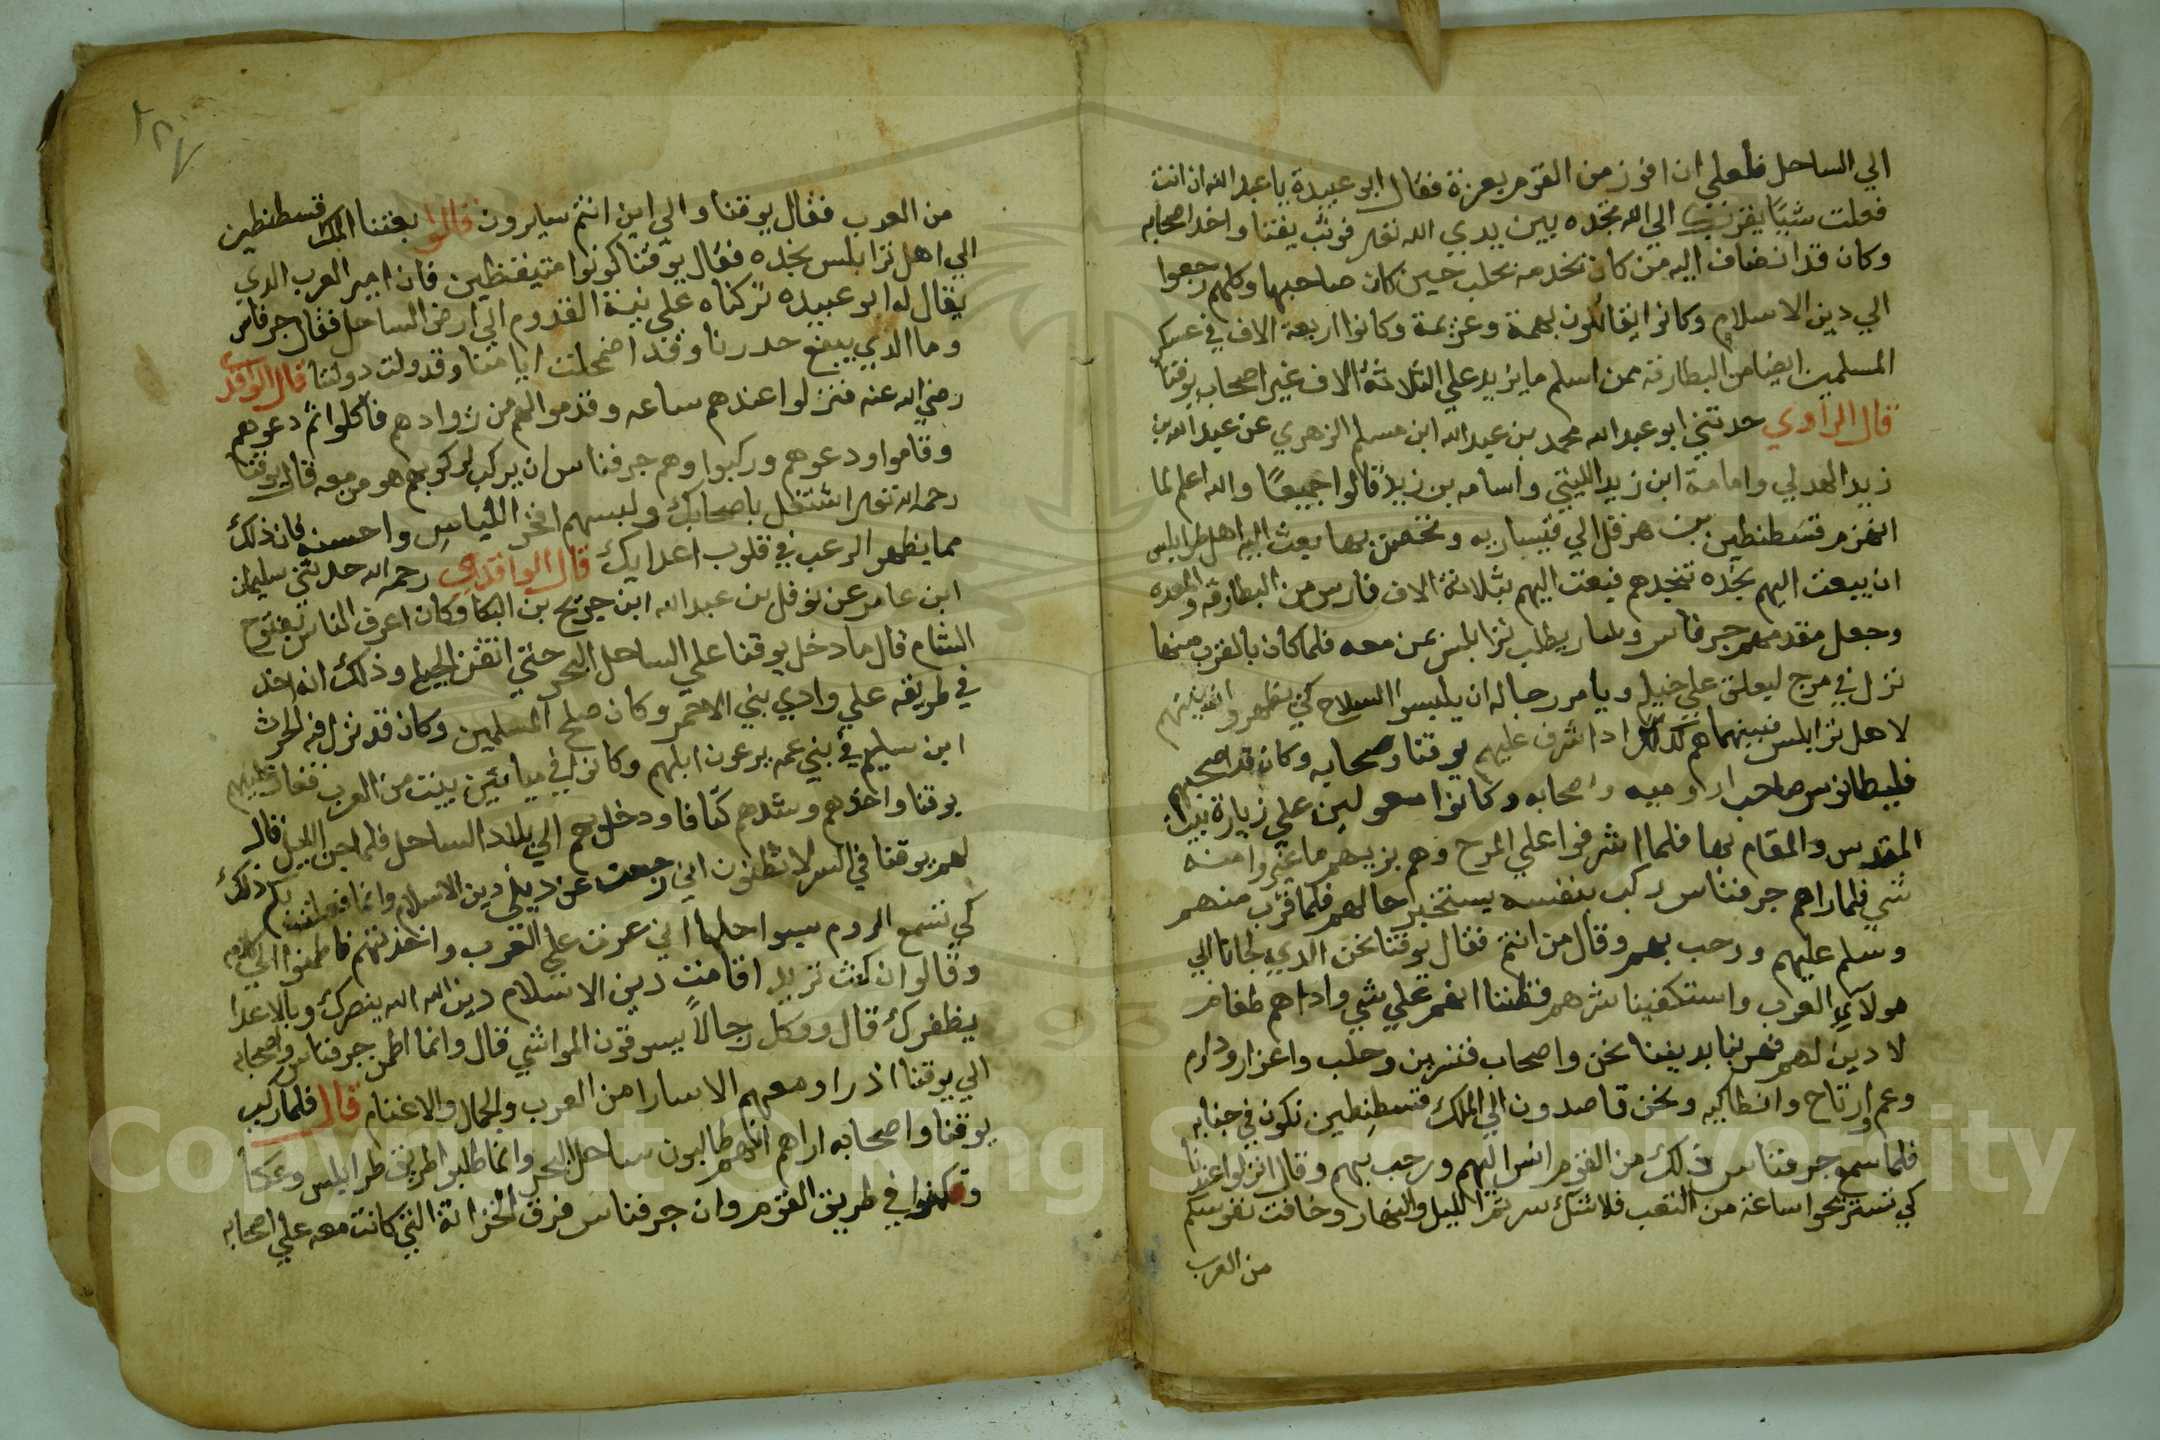 الي الساحل فلعلي ان افوز من القوم بعزة فقال ابو عبيدة يا عبد الله ان انت
فعلت شيًا يقربك الي الله تجده بين يدي الله تعر فوثب يقنا واخذ اصحابه
وكان قد انضاف اليه من كان يخدمه بحلب حين كان صاحبها وكلهم رجعوا
الي دين الاسلام وكانوا يقاتلون بهمة وعزيمة وكانوا اربعة الاف في عسكر
المسلمين ايضا من البطارقه ممن اسلم ما يزيد علي الثلاثة الاف غير اصحاب يوقنا
قال الراوي حدثني ابو عبد الله محمد بن عبد الله ابن مسلم الزهري عن عبد الله بن
زيد الهدلي وامامة ابن زيد الليثي واسامه بن زيد قالوا جميعًا والله اعلم لما
انهزم قسطنطين بن هرقل الي قيساريه وتحصن بها بعث اليه اهل طرابلس
ان يبعث اليهم نجده تنجدهم فبعث اليهم بثلاثة الاف فارس من البطارقه
وجعل مقدمهم جرفاس وسار يطلب ترابلس بمن معه فلما كان بالقرب منها
نزل في مرج ليعلق علي خيله ويامر رجاله ان يلبسوا السلاح كي يظهر
لاهل ترابلس فبينما هم كذلك اذا اشرف عليهم يوقنا واصحابه وكان قد
فليطانوس صاحب اروميه واصحابه وكانوا معولين علي زيارة بيت
المقدس والمقام بها فلما اشرفوا علي المرج وهم بزيهم ما غيروا منه
شي فلما راهم جرفناس ركب بنفسه يستخبر حالهم فلما قرب منهم
وسلم عليهم ورحب بهم وقال من انتم فقال يوقنا نحن الدي لجانا الي
هولاي العرب واستكفينا شرهم فظننا انهم علي شي واذا هم طغام
لا دين لهم فهربنا بديننا نحن واصحاب قنسرين وحلب واعزاز ودارم
وعم وارتاح وانطاكيه ونحن قاصدون الي الملك قسطنطين نكون في جنابه
فلما سمع جرفناس ذلك من القوم انس اليهم ورحب بهم وقال انزلوا عندنا
كي تستريحوا ساعة من التعب فلا شك سرتم الليل والنهار وخافت نفوسكم
من العرب
من العرب فقال يوقنا والي اين انتم سايرون قالوا بعثنا الملك قسطنطين
الي اهل ترابلس نجده فقال يوقنا كونوا متيقظين فان امير العرب الدي
يقال له ابو عبيده تركناه علي نية القدوم الي ارض الساحل فقال جرفاس
وما الذي ينفع حدرنا وقد اضمحلت ايامنا وقد ولت دولتنا قال الواقدي
رضي الله عنه فنزلوا عندهم ساعه وقدموا لهم من زوادهم فاكلوا ثم دعوهم
وقاموا ودعوهم وركبوا وهم جرفناس ان يركب لركوبهم هو من معه قال يوقنا
رحمه الله تعر اشتغل باصحابك ولبسهم افخر اللباس واحسنه فان ذلك
مما يظهر الرعب في قلوب اعدايك قال الواقدي رحمه الله حدثني سليمان
ابن عامر عن نوفل بن عبد الله ابن جريح بن البكا وكان اعرف الناس بفتوح
الشام قال ما دخل يوقنا علي الساحل البحر حتي اتقن الحيله وذلك انه اخذ
في طريقه علي وادي بني الاحمر وكان صلح المسلمين وكان قد نزل فيه الحرث
ابن سليم في بني عمه يرعون ابلهم وكانوا في مياتين بيت من العرب فغار عليهم
يوقنا واخذهم وشدهم كتافا ودخل بهم الي بلاد الساحل فلما جن الليل قال
لهم يوقنا في السر لا تظنون اني رجعت عن ديني دين الاسلام وانما فعلت بكم ذلك
كي تسمع الروم بسواحلها اني عرت علي العرب واخذتهم فاطمنوا الي كلامه
وقالوا ان كنت تريد اقامت دين الاسلام دين الله الله ينصرك وبالاعدا
يظفرك قال ووكل رجالاً يسوقون المواشي قال وانما اطمن جرفناس واصحابه
الي يوقنا اذ راو معهم الاسارا من العرب والجمال والاغنام قال فلما ركب
يوقنا واصحابه اراهم انهم طالبون ساحل البحر وانما طلبوا طريق طرابلس وعكا
وكمنوا في طريق القوم وان جرفناس فرق الخزانة التي كانت معه علي اصحابه
Copyright © King Saud University